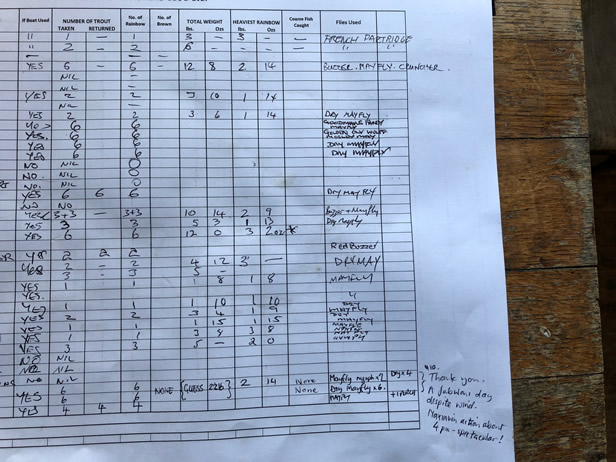 If Boat Used NUMBER OF TROUT No. of Rainbow No. of Brown TOTAL WEIGHT HEAVIEST RAINBOW Coarse Fish Caught Flies Used
TAKEN RETURNED lbs. Ozs lbs. Ozs
" 1 – 1 – 3 – 3 – FRENCH PARTRIDGE
" 2 – 2 – 6 – " "
YES 6 – 6 – 12 8 2 14 BUZZER. MAYFLY. CRUNCHER.
– NIL –
– NIL –
YES 2 – 2 3 10 1 14
– NIL –
YES 2 2 3 6 1 14 DRY MAYFLY
6 6
YES 6 6
YES 6 6 DRY MAYFLY
YES 6 6 DRY MAYFLY
NO NIL 0
NO. NIL 0
NO. NIL 0
YES 6 6 6 DRY MAY FLY
NO NO
YES 3+3 – 3+3 10 14 2 9 Buzzer + Mayfly
YES 3 3 5 3 1 13 Dry Mayfly
YES 6 6 12 0 3 2oz*
RED BUZZER
YES 2 2 2
YES 2 – 2 4 12 3 – DRY MAY
3 – 3 5 –
YES 1 1 1 8 1 8 MAYFLY
YES.
YES 1 1 1 10 1 10
YES 2 2 3 4 1 9 MAYFLY
YES 1 1 1 15 1 15 MAYFLY
YES 1 1 3 8 3 8
YES 3 3 5 – 2 0
NO NIL
NIL
NO NIL 6 NONE {GUESS 22lb} 2 14 None Mayfly nymph x2 Dry x 4
YES 6 6 None Dry Mayfly x 6.
YES 4 4 4
Thank you.
A fabulous day
despite wind.
Maximum action about
4 pm - spectacular!